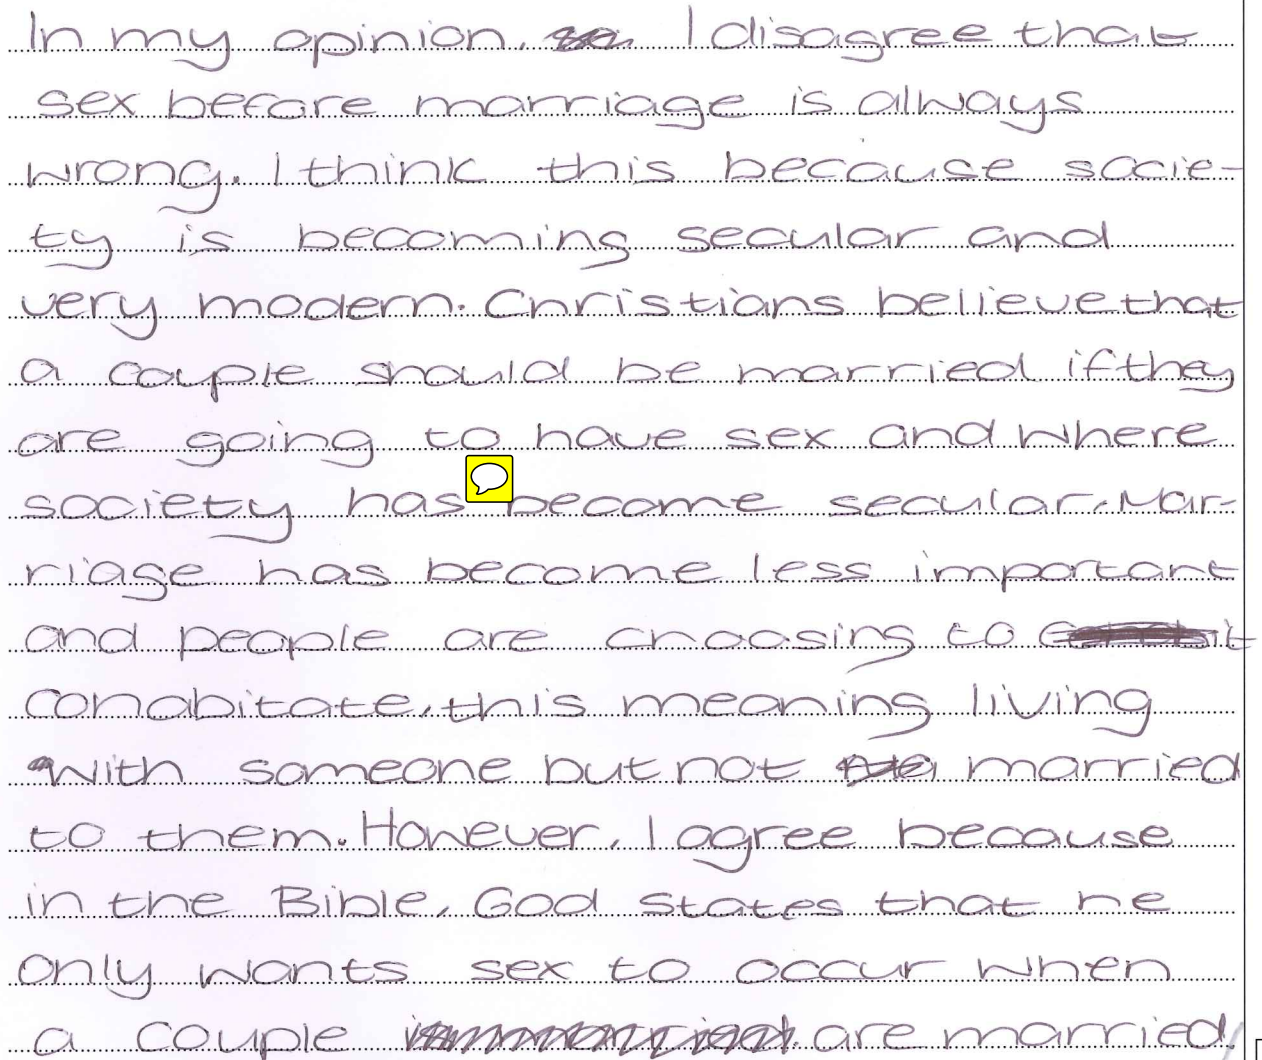 In my opinion, I disagree that
sex before marriage is always
wrong. I think this because socie-
ty is becoming secular and
very modern. Christians believe that
a couple should be married if they
are going to have sex and where
society has become secular. Mar-
riage has become less important
and people are choosing to
cohabitate, this meaning living
with someone but not married
to them. However, I agree because
in the Bible, God states that he
only wants sex to occur when
a couple are married.